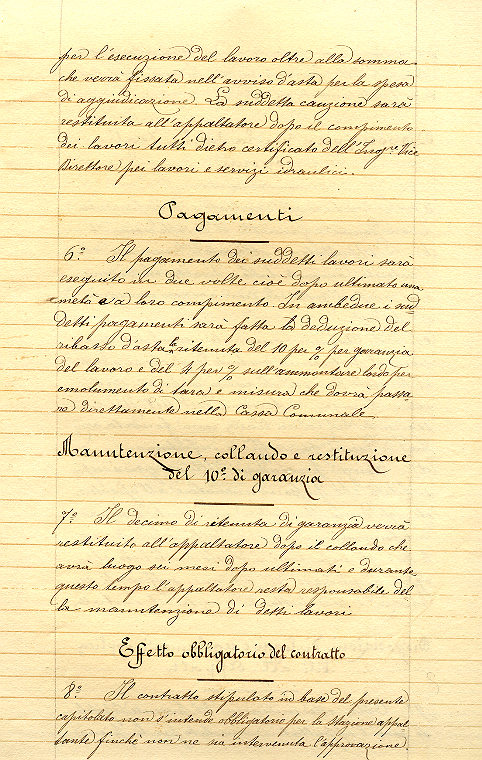 per l'esecuzione del lavoro oltre alla somma
che verrà fissata nell'avviso d'asta per la spesa
di aggiudicazione. La suddetta cauzione sarà
restituita all'appaltatore dopo il compimento
dei lavori tutti dietro certificato dell'Ingre Vice
Direttore pei lavori e servizi idraulici.
Pagamenti
6o. Il pagamento dei suddetti lavori sarà
eseguito in due volte cioè dopo ultimato una
metà e a loro compimento. In ambedue i sud
detti pagamenti sarà fatta la deduzione del
ribasso d'asta la ritenuta del 10 per % per garanzia
del lavoro e del 4 per % sull'ammontare lordo per
emolumento di tara e misura che dovrà passa
re direttamente nella Cassa Comunale.
Manutenzione, collaudo e restituzione
del 10o. di garanzia
7o. Il decimo di ritenuta di garanzia verrà
restituito all'appaltatore dopo il collaudo che
avrà luogo sei mesi dopo ultimati e durante
questo tempo l'appaltatore resta responsabile del
la manutenzione di detti lavori
Effetto obbligatorio del contratto
8o. Il contratto stipulato in base del presente
capitolato non s'intende obbligatorio per la stazione appal
tante finchè non ne sia intervenuta l'approvazione.